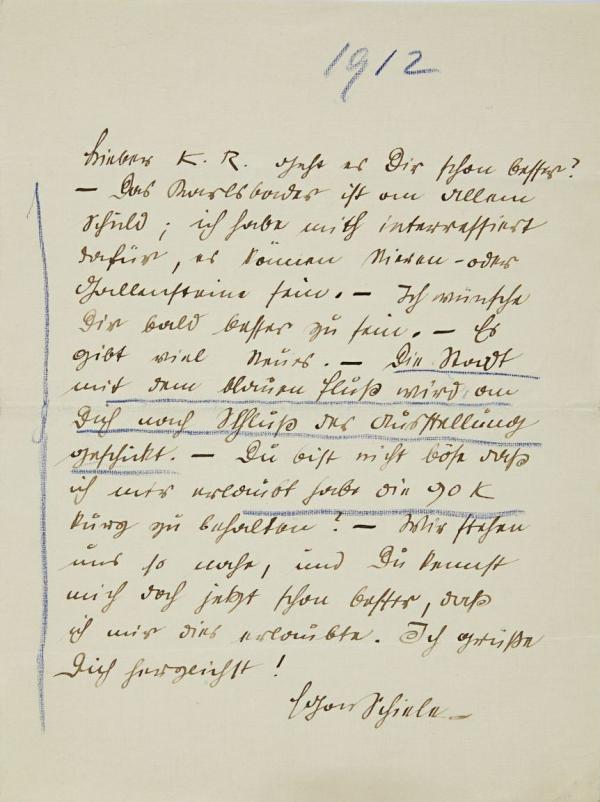 1912
Lieber K. R. geht es Dir schon besser?
— Das Karlsbader ist an allem
Schuld; ich habe mich interressiert
dafür, es können Nieren - oder
Gallensteine sein. — Ich wünsche
Dir bald besser zu sein. — Es
gibt viel Neues. — Die Stadt
mit dem blauen Fluß wird an
Dich nach Schluß der Ausstellung
geschickt. — Du bist nicht böse daß
ich mir erlaubt habe die 90 K
kurz zu behalten? — Wir stehen
uns so nahe, und Du kennst
mich doch jetzt schon besser, daß
ich mir dies erlaubte. Ich grüße
Dich herzlichst!
Egon Schiele